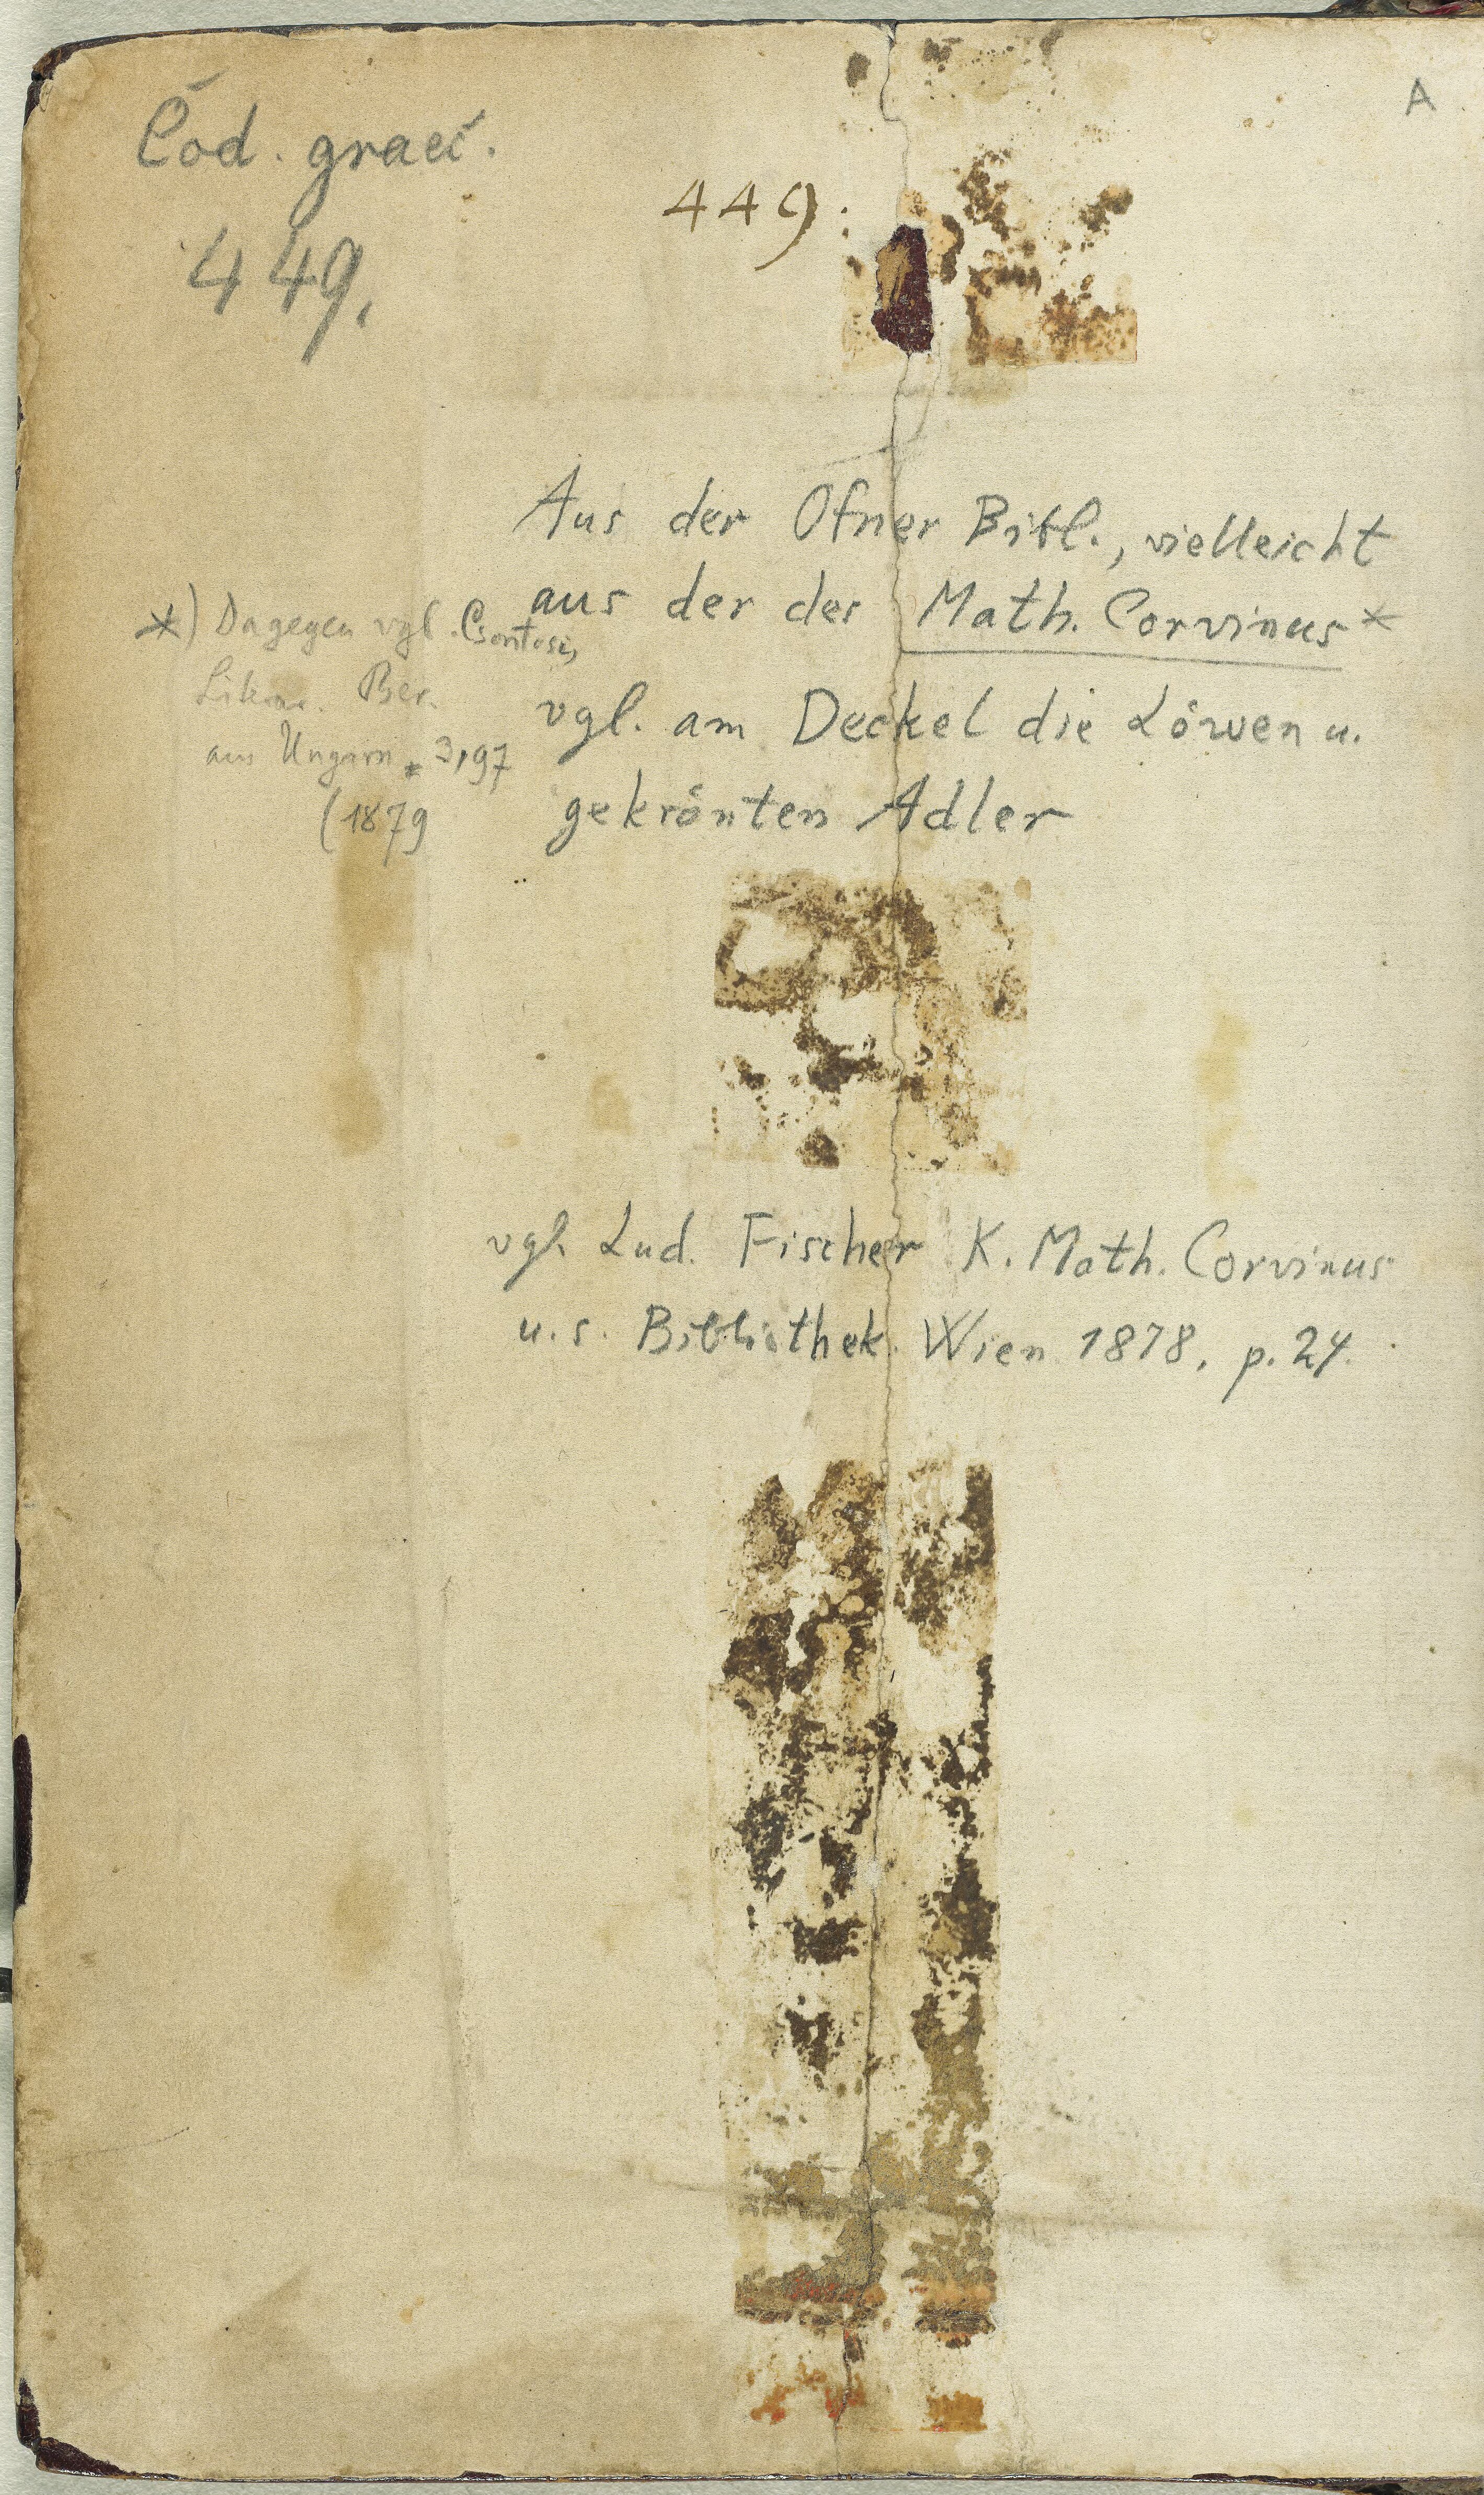 A
Cod. graec.
449.
449.
Aus der Ofner Bibl., vielleicht
aus der des Math. Corvinus*
vgl. am Deckel die Löwen u.
gekrönten Adler
*) Dagegen vgl. Csontosi,
Literar. Ber.
aus Ungarn 3,97
(1879
vgl. Lud. Fischer K. Math. Corvinus
u. s. Bibliothek. Wien 1878, p. 24.